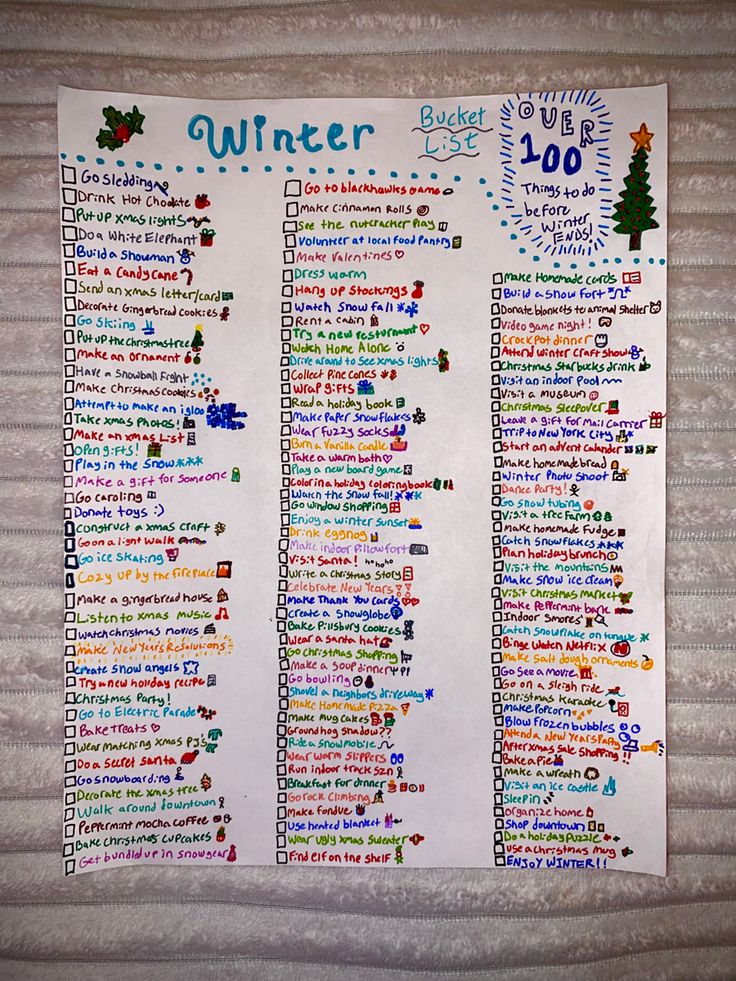 Winter
Bucket
List
OVER
100
Things to do
before
Winter
ENDS!
Go Sledding
Drink Hot Chocolate
Put up xmas lights
Do a White Elephant
Build a Snowman
Eat a Candy Cane
Send an xmas letter/card
Decorate Gingerbread Cookies
Go Skiing
Put up the Christmas tree
Make an ornament
Have a Snowball Fight
Make Christmas cookies
Attempt to make an igloo
Take xmas Photos!
Make an xmas List
Open gifts!
Play in the Snow
Make a gift for someone
Go caroling
Donate toys :)
Construct a xmas craft
Go on a light walk
Go ice skating
Cozy up by the fireplace
Make a gingerbread house
Listen to xmas music
Watch christmas movies
Make New Years Resolutions
Create Snow angels
Try a new holiday recipe
Christmas Party!
Go to Electric Parade
Bake treats
Wear Matching xmas PJ's
Do a secret santa
Go snowboarding
Decorate the xmas tree
Walk around downtown
Peppermint mocha coffee
Bake Christmas cupcakes
Get bundled up in snowgear
Go to blackhawks game
Make Cinnamon Rolls
See the nutcracker Play
Volunteer at local Food Pantry
Make Valentines
Dress warm
Hang up Stockings
Watch Snow fall
Rent a cabin
Try a new resturant
Watch Home Alone
Drive around to See xmas lights
Collect Pine Cones
Wrap gifts
Read a holiday book
Make Paper Snowflakes
Wear Fuzzy Socks
Burn a Vanilla Candle
Take a warm bath
Play a new board game
Color in a holiday coloring book
Watch the Snow fall!
Go window Shopping
Enjoy a winter sunset
Drink eggnog
Make indoor Pillow fort
Visit Santa! ho ho ho
Write a Christmas Story
Celebrate New Years
Make Thank You Cards
Create a Snowglobe
Bake Pillsbury Cookies
Wear a santa hat
Go Christmas Shopping
Make a Soup dinner
Go bowling
Shovel a neighbors driveway
Make Homemade Pizza
Make Mug Cakes
Groundhog Shadow??
Ride a Snowmobile
Wear warm Slippers
Run indoor track SZN
Breakfast for dinner
Go rock Climbing
Make fondue
Use heated blanket
Wear Ugly xmas Sweater
Find elf on the shelf
Make Homemade cards
Build a snow fort
Donate blankets to animal Shelter
Video game night!
Crockpot dinner
Attend Winter craft show
Christmas Starbucks drink
Visit an indoor Pool
Visit a museum
Christmas Sleepover
Leave a gift for Mail Carrier
Trip to New York City
Start an advent Calander
Make homemade bread
Winter Photo Shoot
Dance Party!
Go snow tubing
Visit a tree Farm
Make homemade Fudge
Catch Snowflakes
Plan holiday brunch
Visit the mountains
Make Snow ice cream
Visit Christmas Market
Make Peppermint bark
Indoor Smores
Catch snowflake on tongue
Binge Watch Netflix
Make Salt dough ornaments
Go See a movie
Go on a sleigh ride
Christmas Karaoke
Make Popcorn
Blow Frozen bubbles
Attend a New Years Party
After xmas Sale Shopping!!
Bake a Pie
Make a wreath
Visit an ice castle
Sleep in
Organize home
Shop downtown
Do a holiday puzzle
Use a Christmas mug
ENJOY WINTER!!